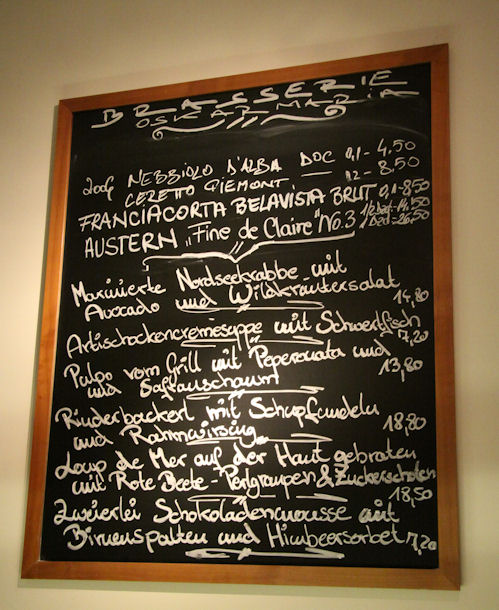 BRASSERIE
OSKAR MARIA
2004 NEBBIOLO D'ALBA DOC 0,1 - 4.50
CERETTO PIEMONT — 0,2 - 8.50
FRANCIACORTA BELAVISTA BRUT 0,1-8,50
AUSTERN „Fine de Claire" No.3 1/2 Dzd - 14.50
1 Dzd - 26.50
Marinierte Nordseekrabbe mit
Avocado und Wildkräutersalat 14,80
Artischockencremesuppe mit Schwertfisch 7,20
Pulpo vom Grill mit Peperonata und
und Safranschaum 13,80
Rinderbackerl mit Schupfnudeln
und Rahmwirsing 18,80
Loup de Mer auf der Haut gebraten
mit Rote Beete-Perlgraupen & Zuckerschoten 18,50
Zweierlei Schokoladenmousse mit
Birnenspalten und Himbeersorbet 7,20